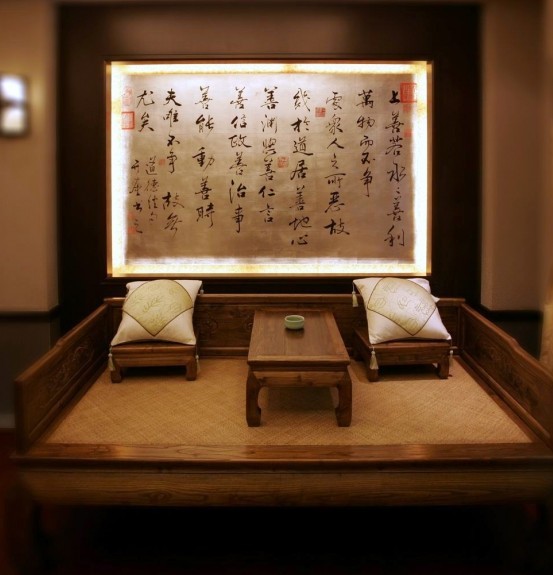 上善若水〻善利
萬物而不争
處衆人之所惡故
幾於道居善地心
善淵與善仁言
善信政善治事
善能動善時
夫唯不争故無
尤矣
道德經